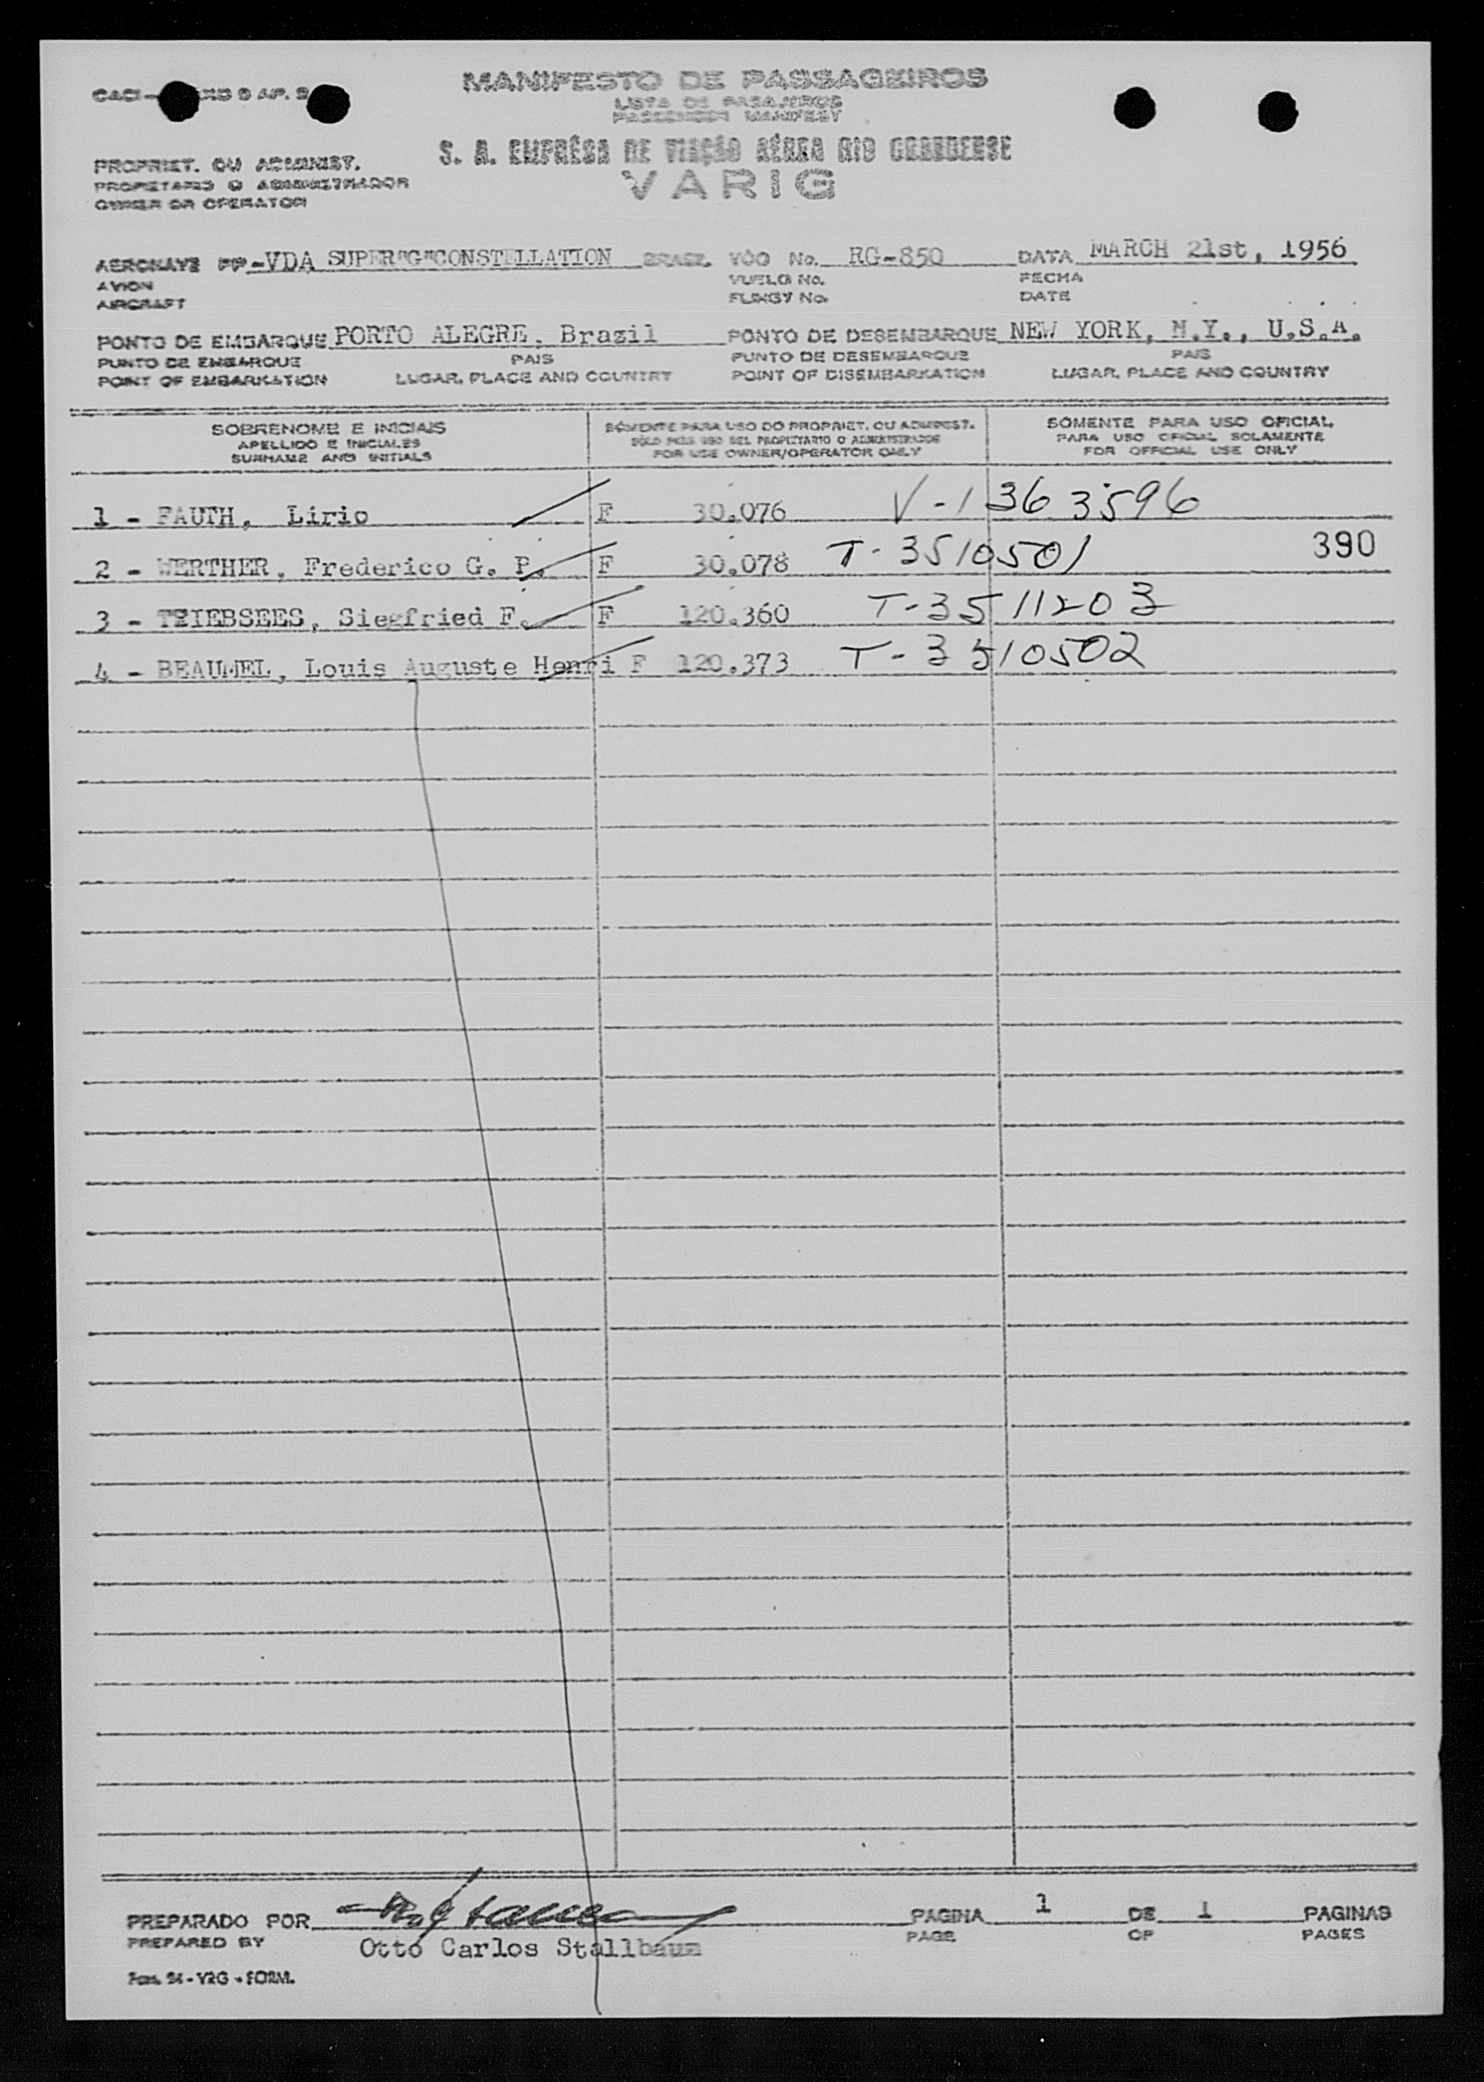 MANIFESTO DE PASSAGEIROS
LISTA DE PASAJEROS
PASSENGER MANIFEST
S. A. EMPRÊSA DE VIAÇÃO AÉREA RIO GRANDENSE
VARIG
PROPRIET. OU ADMINIST.
PROPIETARIO O ADMINISTRADOR
OWNER OR OPERATOR
AERONAVE PP-VDA SUPER"G"CONSTELLATION BRASIL VÔO No. RG-850 DATA MARCH 21st, 1956
AVION VUELO No. FECHA
AIRCRAFT FLIGHT No. DATE
PONTO DE EMBARQUE PORTO ALEGRE, Brazil PONTO DE DESEMBARQUE NEW YORK, N.Y., U.S.A.
PUNTO DE EMBARQUE PAIS PUNTO DE DESEMBARQUE PAIS
POINT OF EMBARKATION LUGAR, PLACE AND COUNTRY POINT OF DISEMBARKATION LUGAR, PLACE AND COUNTRY
SOBRENOME E INICIAIS SÓMENTE PARA USO DO PROPRIET. OU ADMINIST. SÓMENTE PARA USO OFICIAL
APELLIDO E INICIALES SÓLO PARA USO DEL PROPIETARIO O ADMINISTRADOR PARA USO OFICIAL SOLAMENTE
SURNAME AND INITIALS FOR USE OWNER/OPERATOR ONLY FOR OFFICIAL USE ONLY
1 - FAUTH, Lirio F 30.076 V-1363596
390
2 - WERTHER, Frederico G. P. F 30.078 T-3510501
3 - TRIEBSEES, Siegfried F. F 120.360 T-3511203
4 - BEAUMEL, Louis Auguste Henri F 120.373 T-3510502
PREPARADO POR PAGINA 1 DE 1 PAGINAS
PREPARED BY Otto Carlos Stallbaum PAGE OF PAGES
Fam. 94 - VRG - FORM.